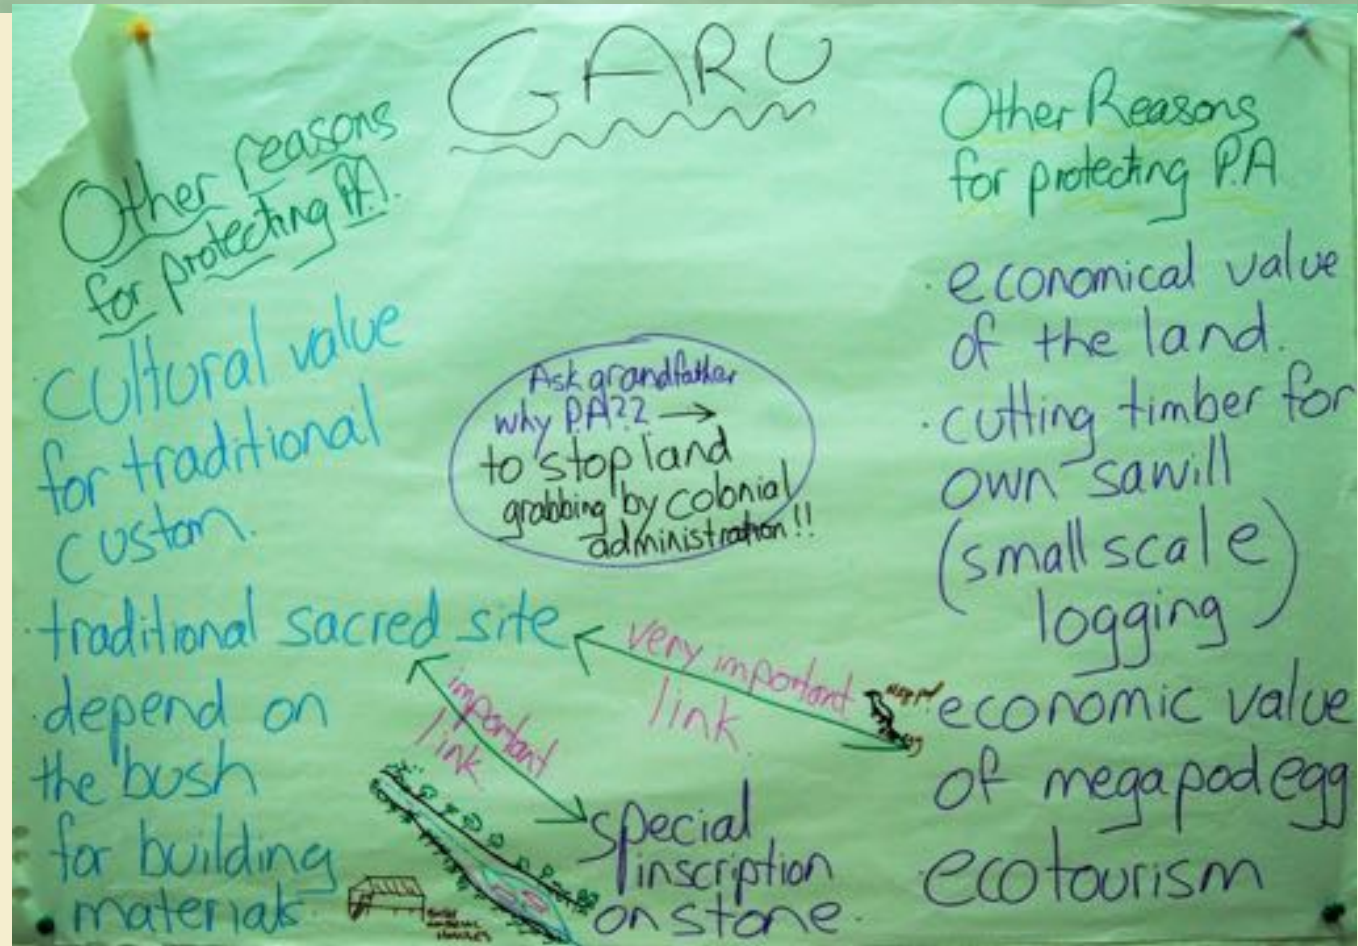 GARU
Other reasons
for protecting P.A.
· cultural value
for traditional
custom.
· traditional sacred site
· depend on
the bush
for building
materials
Ask grandfather
why P.A?? →
to stop land
grabbing by colonial
administration!!
important
link
very important
link
special
inscription
on stone.
Other Reasons
for protecting P.A
· economical value
of the land.
· cutting timber for
own sawill
(small scale
logging)
· economic value
of megapod egg
· ecotourism